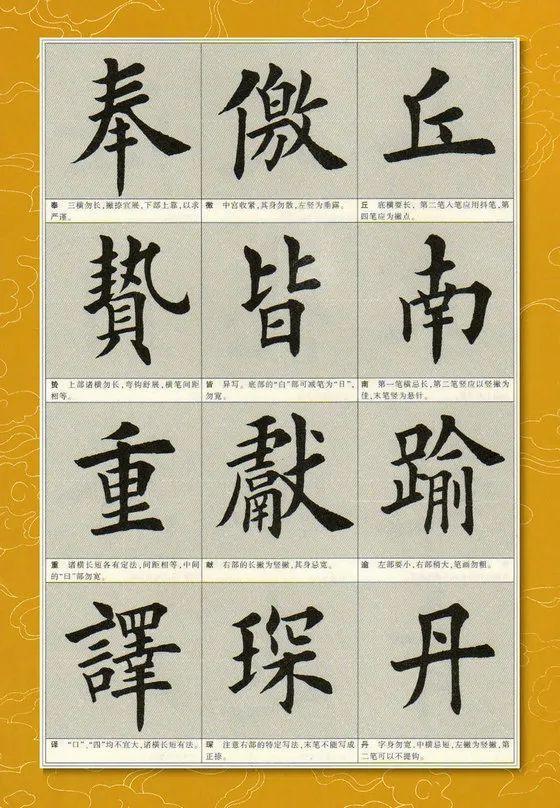 丘
丘 底横要长、第二笔入笔应用抖笔,第
四笔应为撇点。
南
南 第一笔横忌长,第二笔竖应以竖撇为
佳,末笔竖为悬针。
踰
逾 左部要小,右部稍大,笔画勿粗。
丹
丹 字身勿宽,中横忌短,左撇为竖撇,第
二笔可以不提钩。
儌
徼 中宫收紧,其身勿散,左竖为垂露。
皆
皆 异写。底部的“白”部可减笔为“日”,
勿宽。
獻
献 右部的长撇为竖撇,其身忌宽。
琛
琛 注意右部的特定写法,末笔不能写成
正捺。
奉
奉 三横勿长,撇捺宜展,下部上靠,以求
严谨。
贄
贽 上部诸横勿长,弯钩舒展,横笔间距
相等。
重
重 诸横长短各有定法,间距相等,中间
的“曰”部勿宽。
譯
译 “口”、“四”均不宜大,诸横长短有法。